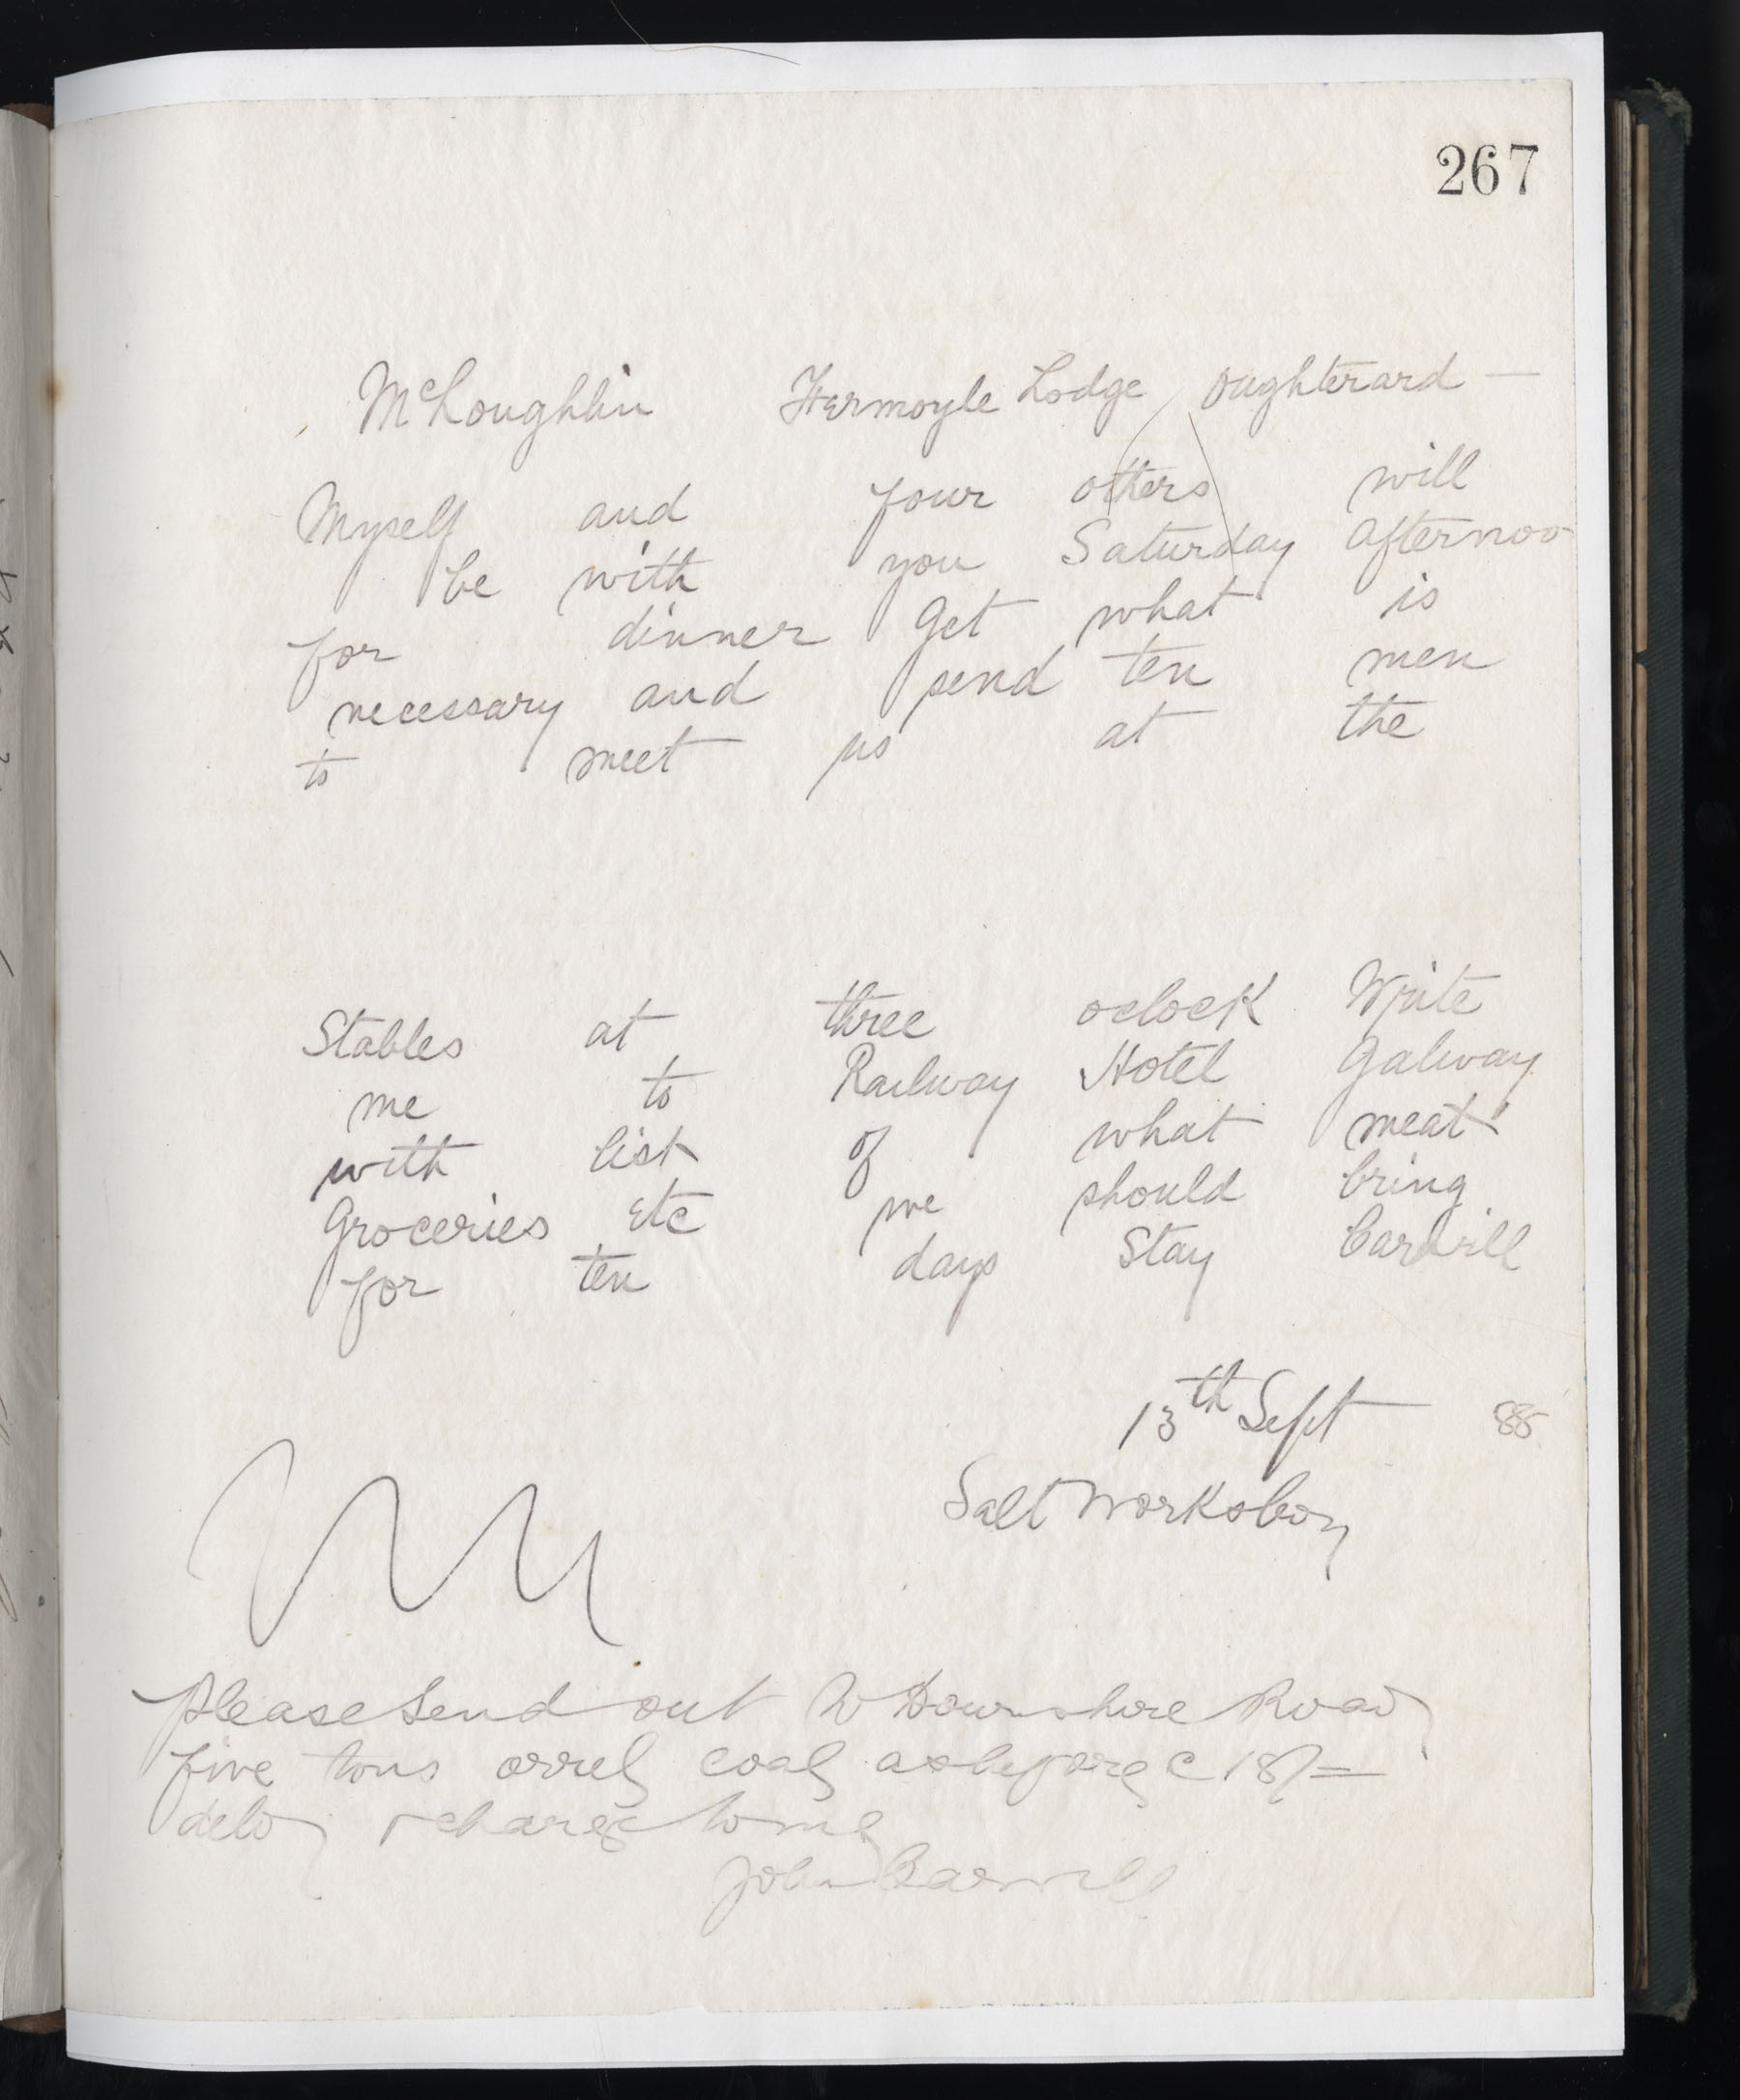 267
McLoughlin Fermoyle Lodge Oughterard —
Myself and four others will
be with you Saturday afternoo
for dinner Get what is
necessary and send ten men
to meet us at the
Stables at three oclock Write
me to Railway Hotel Galway
with list of what meat
Groceries etc we should bring
for ten days Stay Barbrill
13th Sept 88
Salt Works
Please Send out to Downshire Road
five tons orrel coal as before @ 18/=
delv & charge to me
John